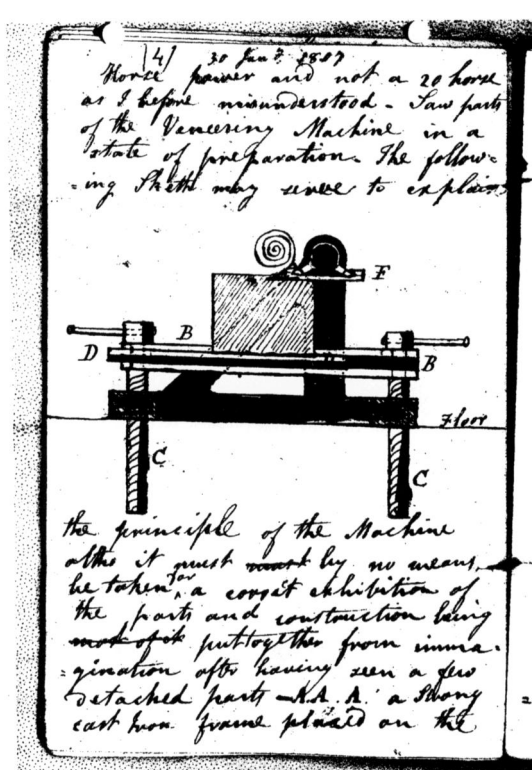 [4] 30 Jany. 1807
Horse power and not a 20 horse
as I before misunderstood - Saw parts
of the Vaneering Machine in a
state of preparation. The follow=
=ing Sketh may serve to explain
F
B
D
B
Floor
C
C
the principle of the Machine
altho it must must by no means
be taken for a corect exhibition of
the parts and construction being
most of it put together from imma=
=gination after having seen a few
detached parts - A.A.A. a Strong
cast Iron frame placed on the